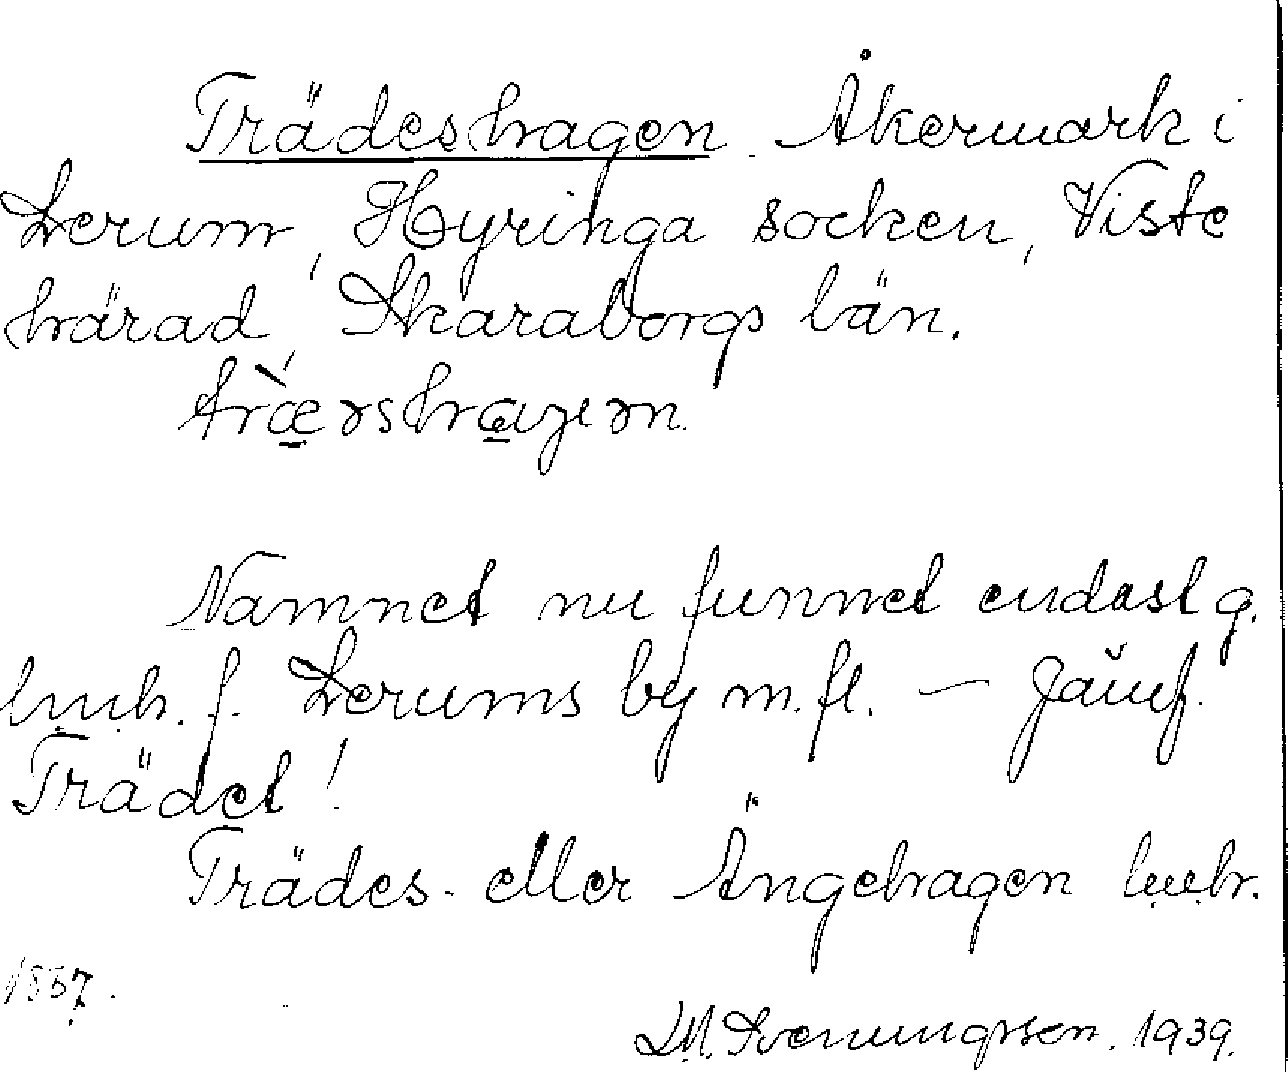 Trädeshagen. Åkermark i
Lerum, Hyringa socken, Viste
härad, Skaraborgs län.

Namnet nu funnet endast g.
lmh. f. Lerums by m. fl. — Jämf.
Trädet!
Trädes- eller Ängehagen lmh.
1857.
Svenungsson. 1939.